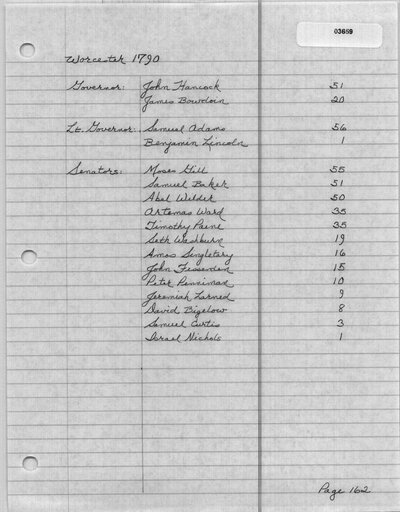 03659
Worcester 1790
Governor: John Hancock 51
James Bowdoin 20
Lt. Governor: Samuel Adams 56
Benjamin Lincoln 1
Senators: Moses Gill 55
Samuel Baker 51
Abel Wilder 50
Artemas Ward 35
Timothy Paine 35
Seth Washburn 19
Amos Singletary 16
John Fessenden 15
Peter Penniman 10
Jeremiah Larned 9
David Bigelow 8
Samuel Curtis 3
Israel Nichols 1
Page 162